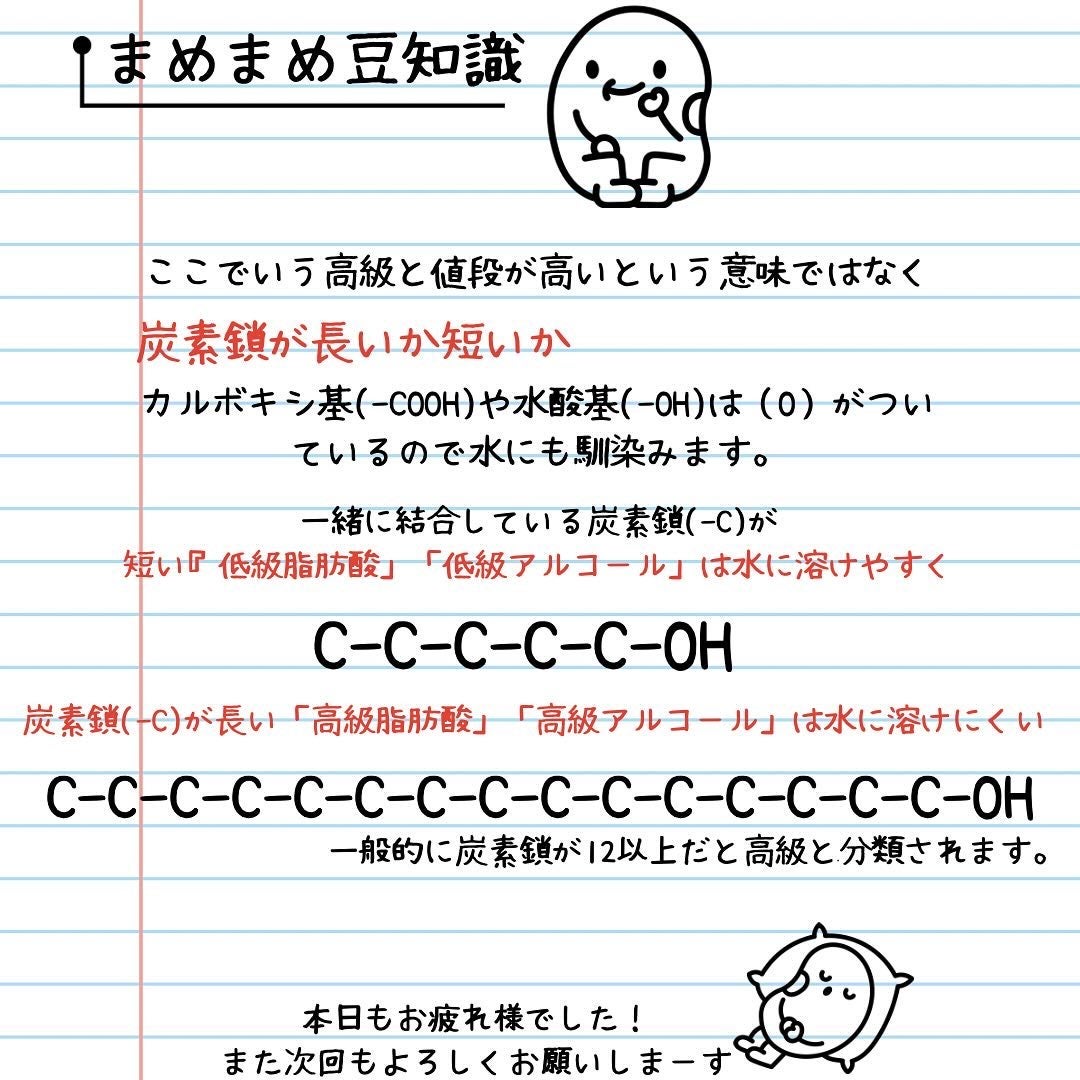 まめまめ豆知識
ここでいう高級と値段が高いという意味ではなく
炭素鎖が長いか短いか
カルボキシ基(-COOH)や水酸基(-OH)は（O）がつい
ているので水にも馴染みます。
一緒に結合している炭素鎖(-C)が
短い『低級脂肪酸」「低級アルコール」は水に溶けやすく
C-C-C-C-C-OH
炭素鎖(-C)が長い「高級脂肪酸」「高級アルコール」は水に溶けにくい
C-C-C-C-C-C-C-C-C-C-C-C-C-C-C-OH
一般的に炭素鎖が12以上だと高級と分類されます。
本日もお疲れ様でした！
また次回もよろしくお願いしまーす